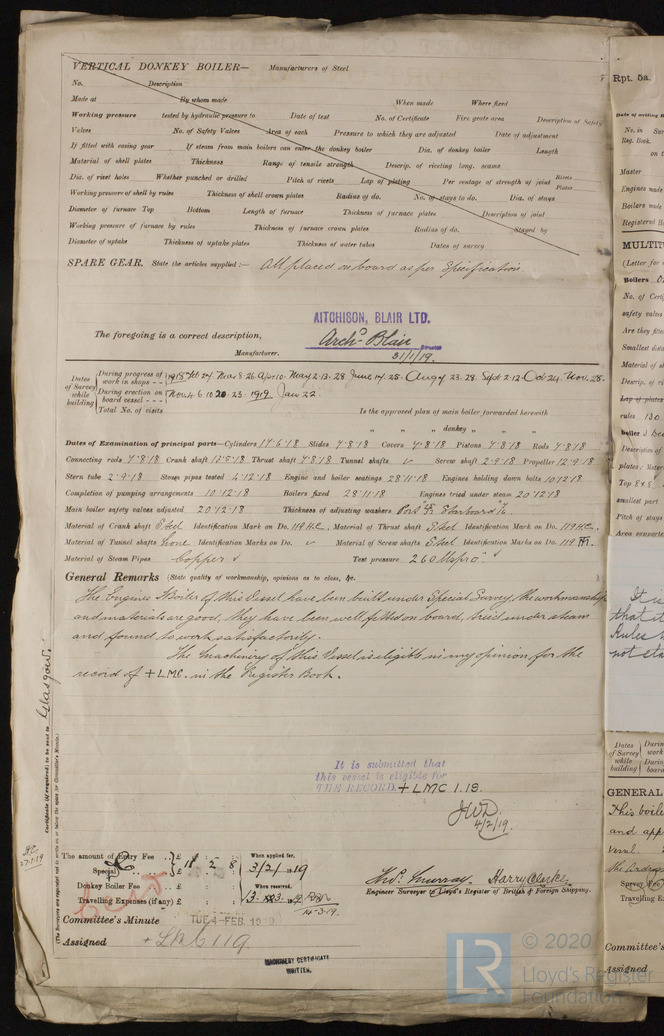 VERTICAL DONKEY BOILER— Manufacturers of Steel
No. Description
Made at By whom made When made Where fixed
Working pressure tested by hydraulic pressure to Date of test No. of Certificate Fire grate area Description of Safety
Valves No. of Safety Valves Area of each Pressure to which they are adjusted Date of adjustment
If fitted with easing gear If steam from main boilers can enter the donkey boiler Dia. of donkey boiler Length
Material of shell plates Thickness Range of tensile strength Descrip. of riveting long. seams
Dia. of rivet holes Whether punched or drilled Pitch of rivets Lap of plating Per centage of strength of joint Rivets Plates
Working pressure of shell by rules Thickness of shell crown plates Radius of do. No. of stays to do. Dia. of stays
Diameter of furnace Top Bottom Length of furnace Thickness of furnace plates Description of joint
Working pressure of furnace by rules Thickness of furnace crown plates Radius of do. Stayed by
Diameter of uptake Thickness of uptake plates Thickness of water tubes Dates of survey
SPARE GEAR. State the articles supplied:— All placed on board as per Specification
AITCHISON, BLAIR LTD.
The foregoing is a correct description, Archd Blair Director
Manufacturer. 31/1/19.
Dates of Survey while building
During progress of work in shops - - 1918 Feb 27 Mar 8. 26 Apr 10. May 2. 13. 28 June 14. 25. Aug 7 23. 28. Sept 2. 12. Oct 24. Nov. 28.
During erection on board vessel - - - Nov 4. 6. 10. 20. 23. 1919 Jan 22.
Total No. of visits Is the approved plan of main boiler forwarded herewith
" " " donkey " " "
Dates of Examination of principal parts—Cylinders 17.6.18 Slides 7.8.18 Covers 7.8.18 Pistons 7.8.18 Rods 7.8.18
Connecting rods 7.8.18 Crank shaft 13.5.18 Thrust shaft 7.8.18 Tunnel shafts ✓ Screw shaft 2.9.18 Propeller 12.9.18
Stern tube 2.9.18 Steam pipes tested 4.12.18 Engine and boiler seatings 28.11.18 Engines holding down bolts 10.12.18
Completion of pumping arrangements 10.12.18 Boilers fixed 28.11.18 Engines tried under steam 20.12.18
Main boiler safety valves adjusted 20.12.18 Thickness of adjusting washers Port Starboard
Material of Crank shaft Steel Identification Mark on Do. 119 H.C. Material of Thrust shaft Steel Identification Mark on Do. 119 H.C.
Material of Tunnel shafts none Identification Marks on Do. ✓ Material of Screw shafts Steel Identification Marks on Do. 119
Material of Steam Pipes Copper ✓ Test pressure 260 lbs pro □" ✓
General Remarks (State quality of workmanship, opinions as to class, &c.
The Engines & Boiler of this Vessel have been built under Special Survey, the workmanship
and materials are good, they have been well fitted on board, tried under steam
and found to work satisfactorily.
The Machinery of this Vessel is eligible in my opinion for the
record of + LMC. in the Register Book.
It is submitted that
this vessel is eligible for
THE RECORD. + LMC 1.19.
JWD.
4/2/19.
Certificate (if required) to be sent to Glasgow.
(The Surveyors are requested not to write on or below the space for Committee's Minute.)
27.1.19
The amount of Entry Fee .. £ : : When applied for,
Special .. £ 18 : 2 : 8 3/2/1919
Donkey Boiler Fee .. £ : : When received,
Travelling Expenses (if any) £ : :
14.3.19.
Thos. Murray. Harry Clarke
Engineer Surveyor to Lloyd's Register of British & Foreign Shipping.
Committee's Minute TUE 4-FEB. 1919
Assigned + LMC 1 19
MACHINERY CERTIFICATE
WRITTEN.
Rpt. 5a.
Date of writing
No. in
Reg. Book.
on
Master
Engines made
Boilers made
Registered
MULTIT
(Letter for
Boilers
No. of Certi
safety valves
Are they fitte
Smallest dista
Material of
Descrip. of
Lap of plates
rules 130
boiler
Description of
plates: Mater
Top
smallest part
Pitch of stays
Area support
It is
that it
Rules
not sta
Dates of Survey while building
During work
During board
GENERAL
This boile
and app
vessel
Survey Fee
Travelling E
Committee's
Assigned
LR © 2020
Lloyd's Register
Foundation